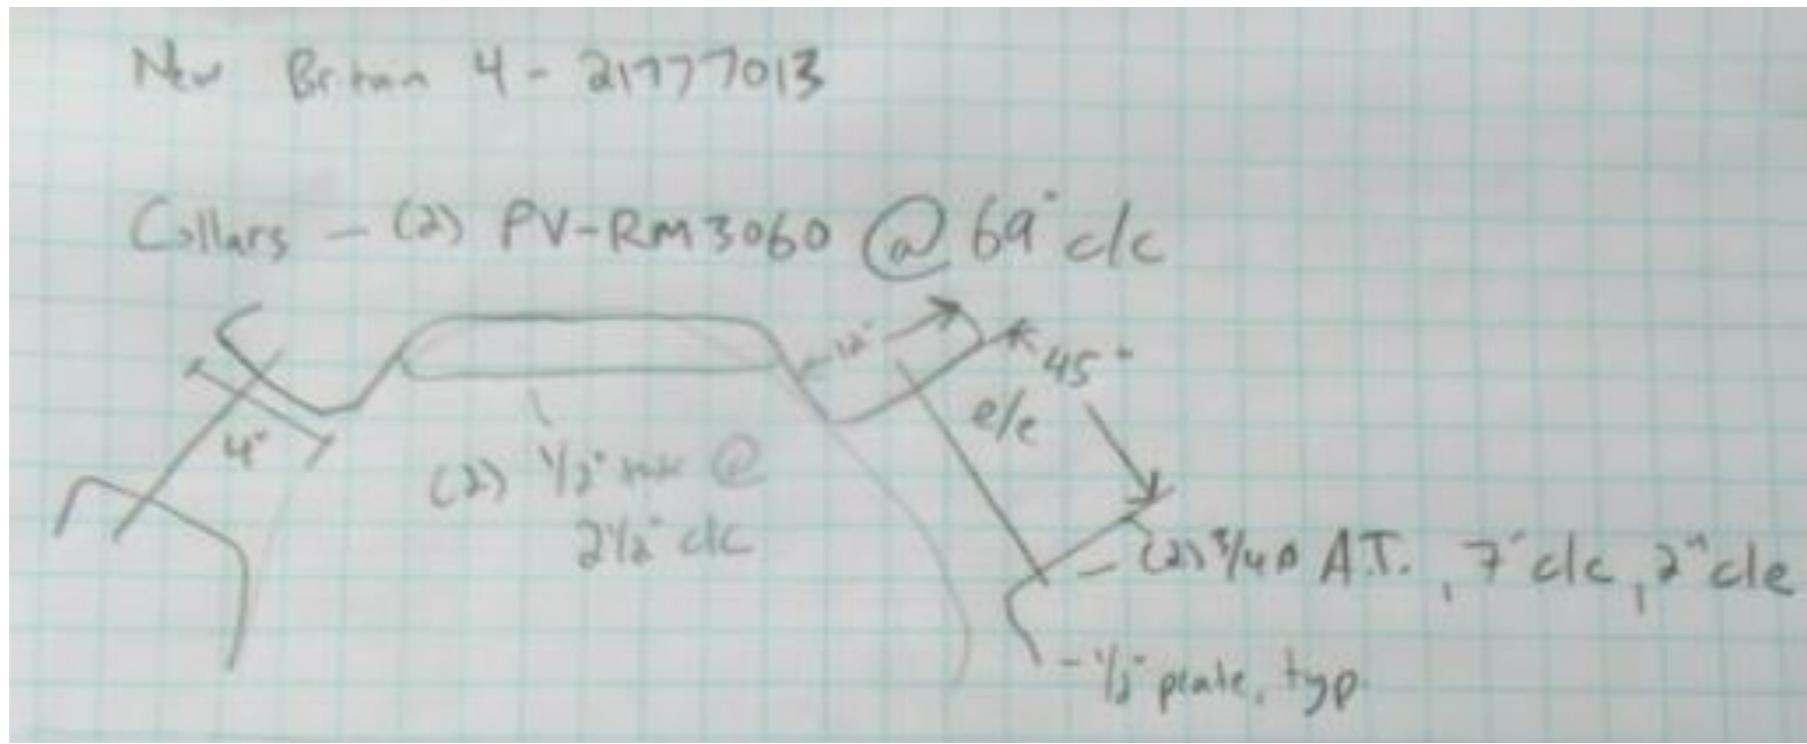 New Britain 4 - 21777013
Collars - (2) PV-RM3060 @ 69" c/c
12"
45"
e/e
4"
(2) 1/2" @
2 1/2" c/c
(2) 3/4 ø A.T., 7" c/c, 2" c/e
- 1/2" plate, typ.